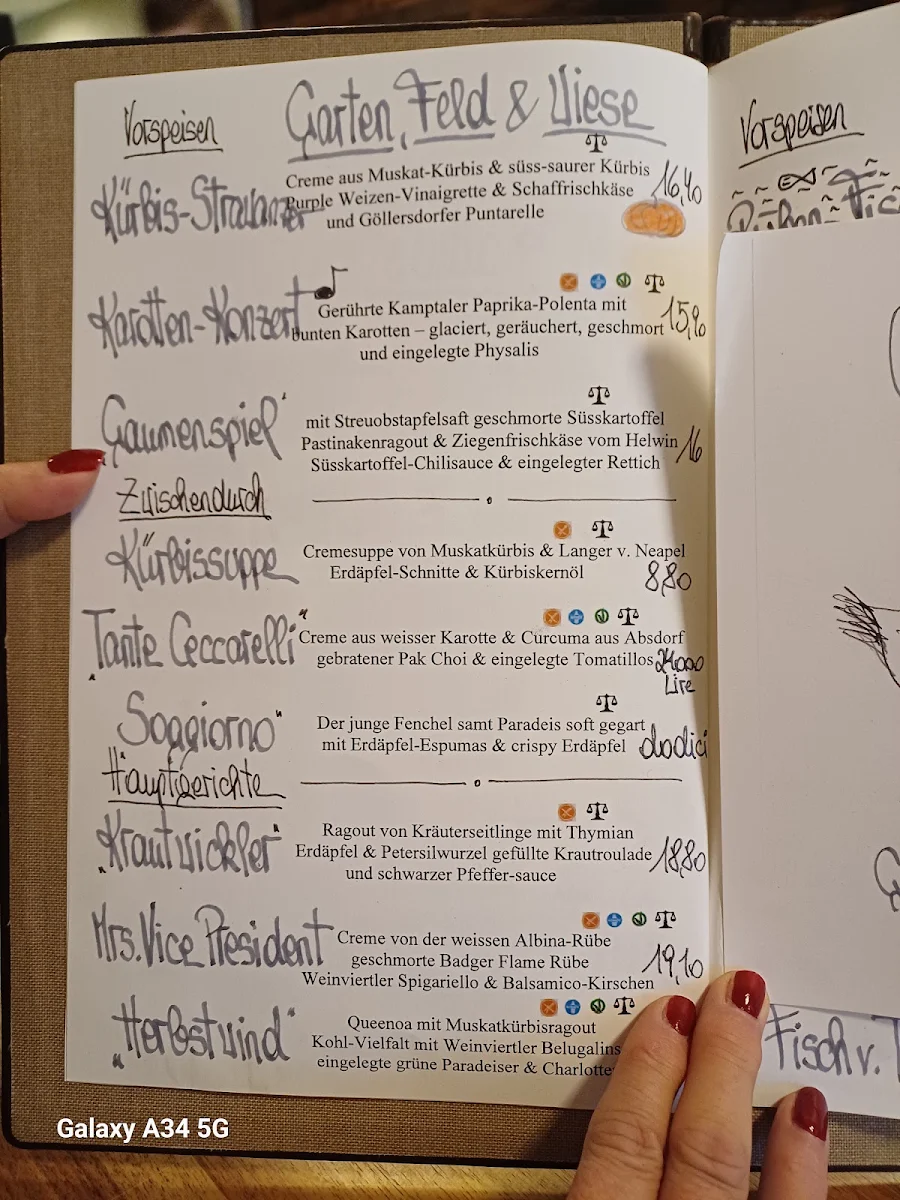 Vorspeisen
Garten, Feld & Wiese
Kürbis-Strawanzer
Creme aus Muskat-Kürbis & süss-saurer Kürbis
Purple Weizen-Vinaigrette & Schaffrischkäse
und Göllersdorfer Puntarelle
16,40
Karotten-Konzert
Gerührte Kamptaler Paprika-Polenta mit
bunten Karotten – glaciert, geräuchert, geschmort
und eingelegte Physalis
15,90
Gaumenspiel
mit Streuobstapfelsaft geschmorte Süsskartoffel
Pastinakenragout & Ziegenfrischkäse vom Helwin
Süsskartoffel-Chilisauce & eingelegter Rettich
16
Zwischendurch
Kürbissuppe
Cremesuppe von Muskatkürbis & Langer v. Neapel
Erdäpfel-Schnitte & Kürbiskernöl
8,80
„Tante Ceccarelli“
Creme aus weisser Karotte & Curcuma aus Absdorf
gebratener Pak Choi & eingelegte Tomatillos
24000
Lire
Soggiorno“
Der junge Fenchel samt Paradeis soft gegart
mit Erdäpfel-Espumas & crispy Erdäpfel
dodici
Hauptgerichte
„Krautwickler“
Ragout von Kräuterseitlinge mit Thymian
Erdäpfel & Petersilwurzel gefüllte Krautroulade
und schwarzer Pfeffer-sauce
18,80
Mrs. Vice President
Creme von der weissen Albina-Rübe
geschmorte Badger Flame Rübe
Weinviertler Spigariello & Balsamico-Kirschen
19,10
„Herbstwind“
Queenoa mit Muskatkürbisragout
Kohl-Vielfalt mit Weinviertler Belugalins
eingelegte grüne Paradeiser & Charlotte
Vorspeisen
Fisch v.
Galaxy A34 5G